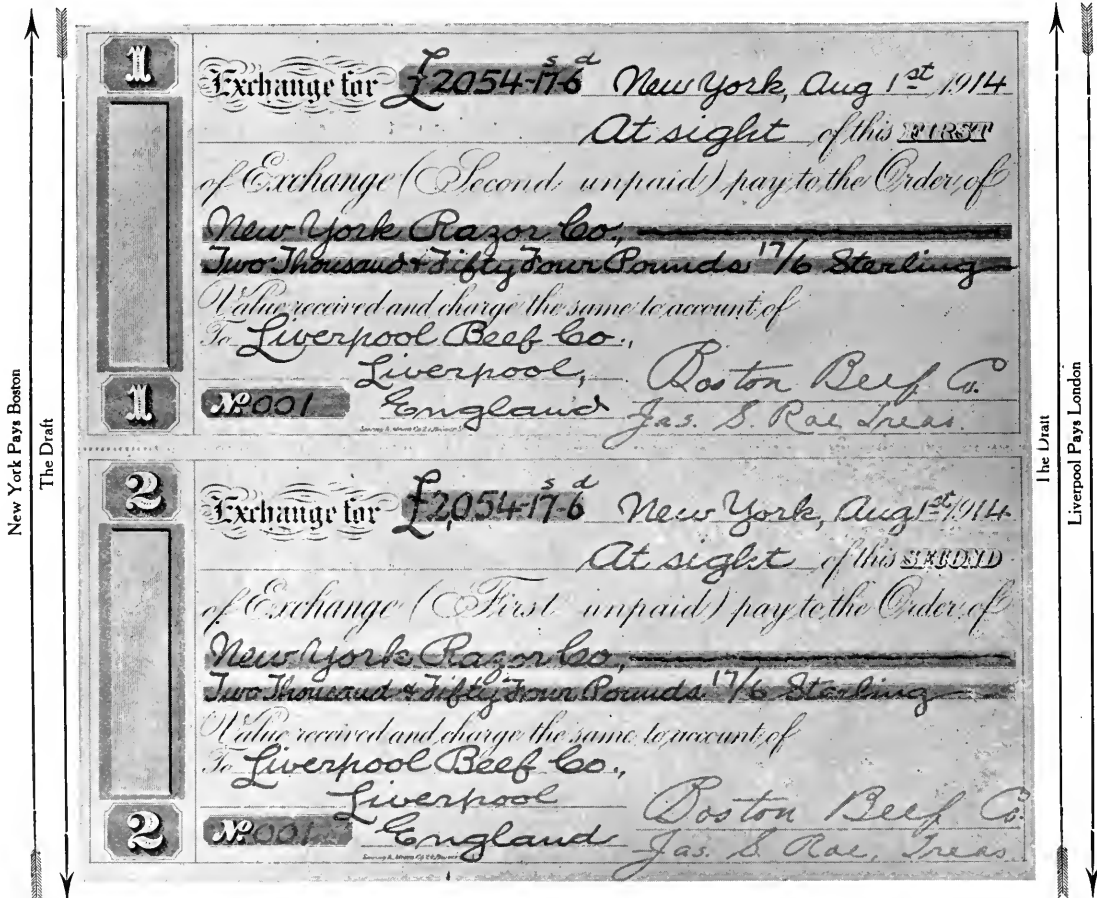 New York Pays Boston
The Draft
1
Exchange for £2054-17s-6d New York, Aug 1st, 1914
At sight of this FIRST
of Exchange (Second unpaid) pay to the Order of
New York Razor Co.,
Two Thousand & Fifty Four Pounds 17/6 Sterling
Value received and charge the same to account of
To Liverpool Beef Co.,
Liverpool,
1
No. 001 England
Boston Beef Co.
Jas. S. Rae Treas.
2
Exchange for £2,054-17s-6d New York, Aug 1st, 1914
At sight of this SECOND
of Exchange (First unpaid) pay to the Order of
New York Razor Co.,
Two Thousand & Fifty Four Pounds 17/6 Sterling
Value received and charge the same to account of
To Liverpool Beef Co.,
Liverpool
2
No. 001 England
Boston Beef Co.
Jas. S. Rae, Treas.
The Draft
Liverpool Pays London